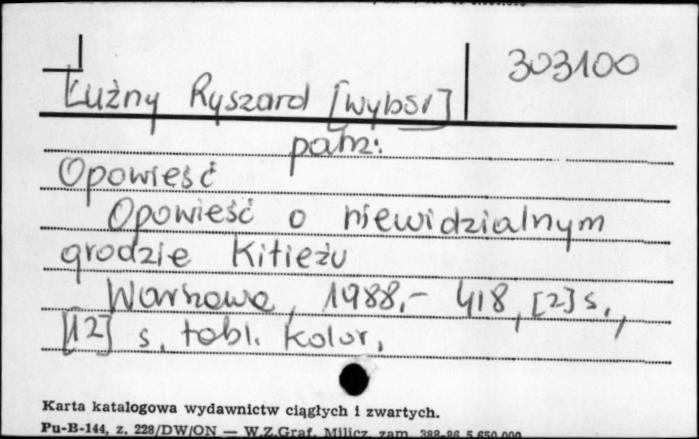 303100
Łużny Ryszard [wybór]
patrz:
Opowieść
Opowieść o niewidzialnym
grodzie Kitieżu
Warszawa, 1988.- 418, [2] s.,
[12] s. tabl. kolor.
Karta katalogowa wydawnictw ciągłych i zwartych.
Pu-B-144, z. 228/DW/ON — W.Z.Graf. Milicz, zam. 388-86 5.650.000